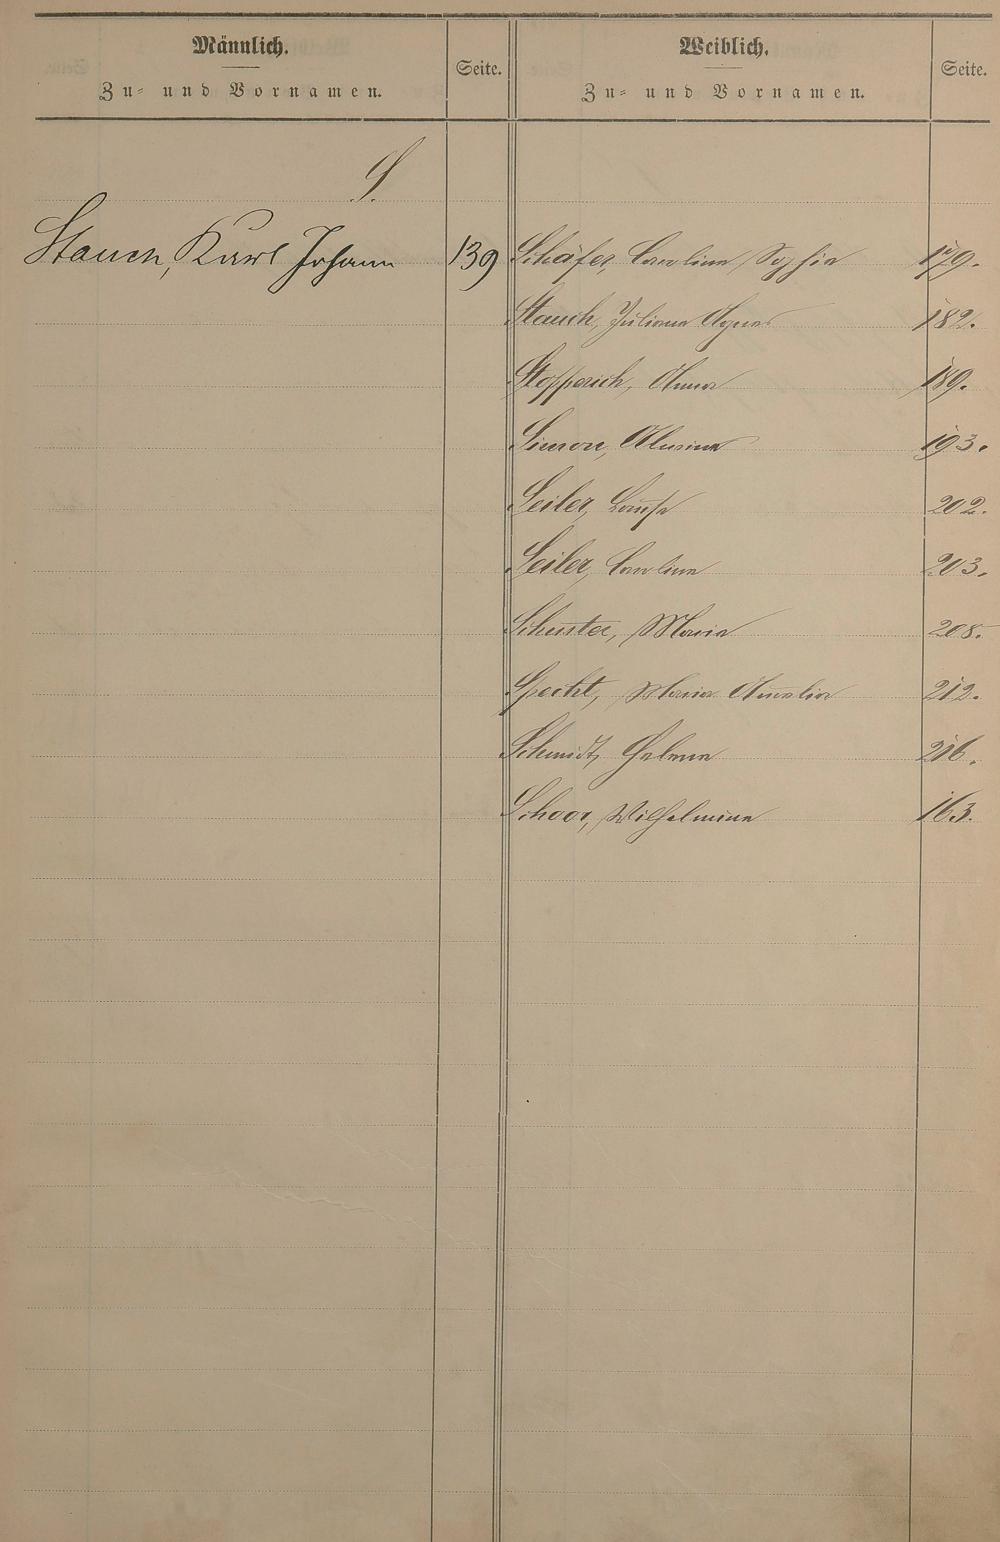 Männlich.
Zu- und Vornamen.
Seite.
Weiblich.
Zu- und Vornamen.
Seite.
S.
Stauch, Karl Johann 139
Schäfer, Caroline Sophie 179.
Stauch, Juliana Agnes 182.
Stopperich, Anna 189.
Simon, 193.
Seiler, Louise 202.
Seiler, Caroline 203.
Schuster, Maria 208.
Specht, Maria Amalia 212.
Schmidt, Helena 216.
Schoor, Wilhelmine 163.